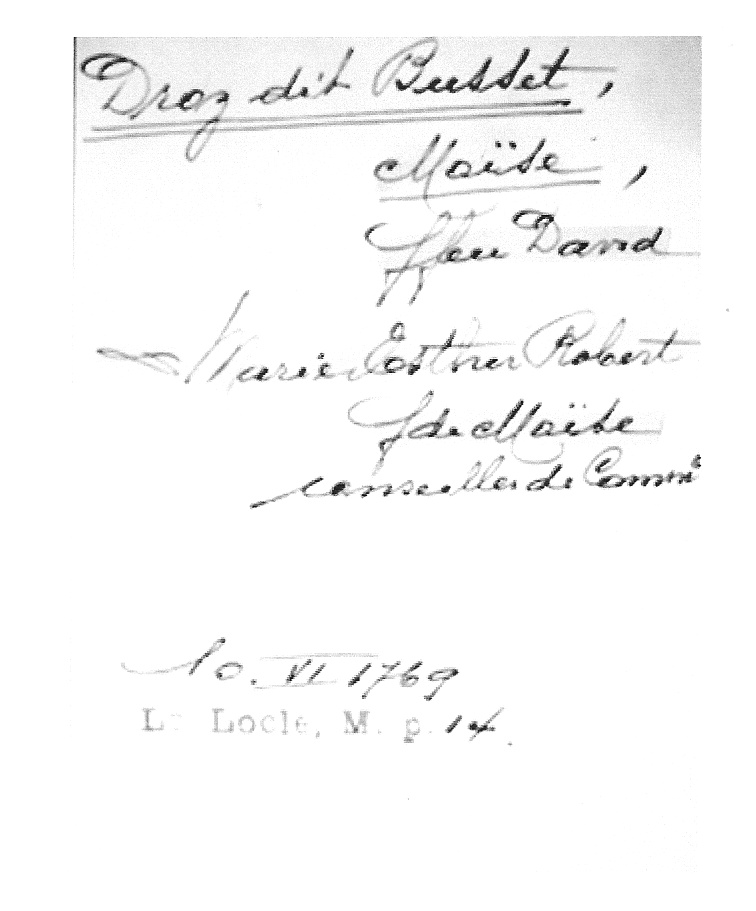 Droz dit Busset,
Moïse,
f feu David
Marie Esther Robert
f de Moïse
conseiller de Comm^té
10. VI 1769
Le Locle, M. p. 14.